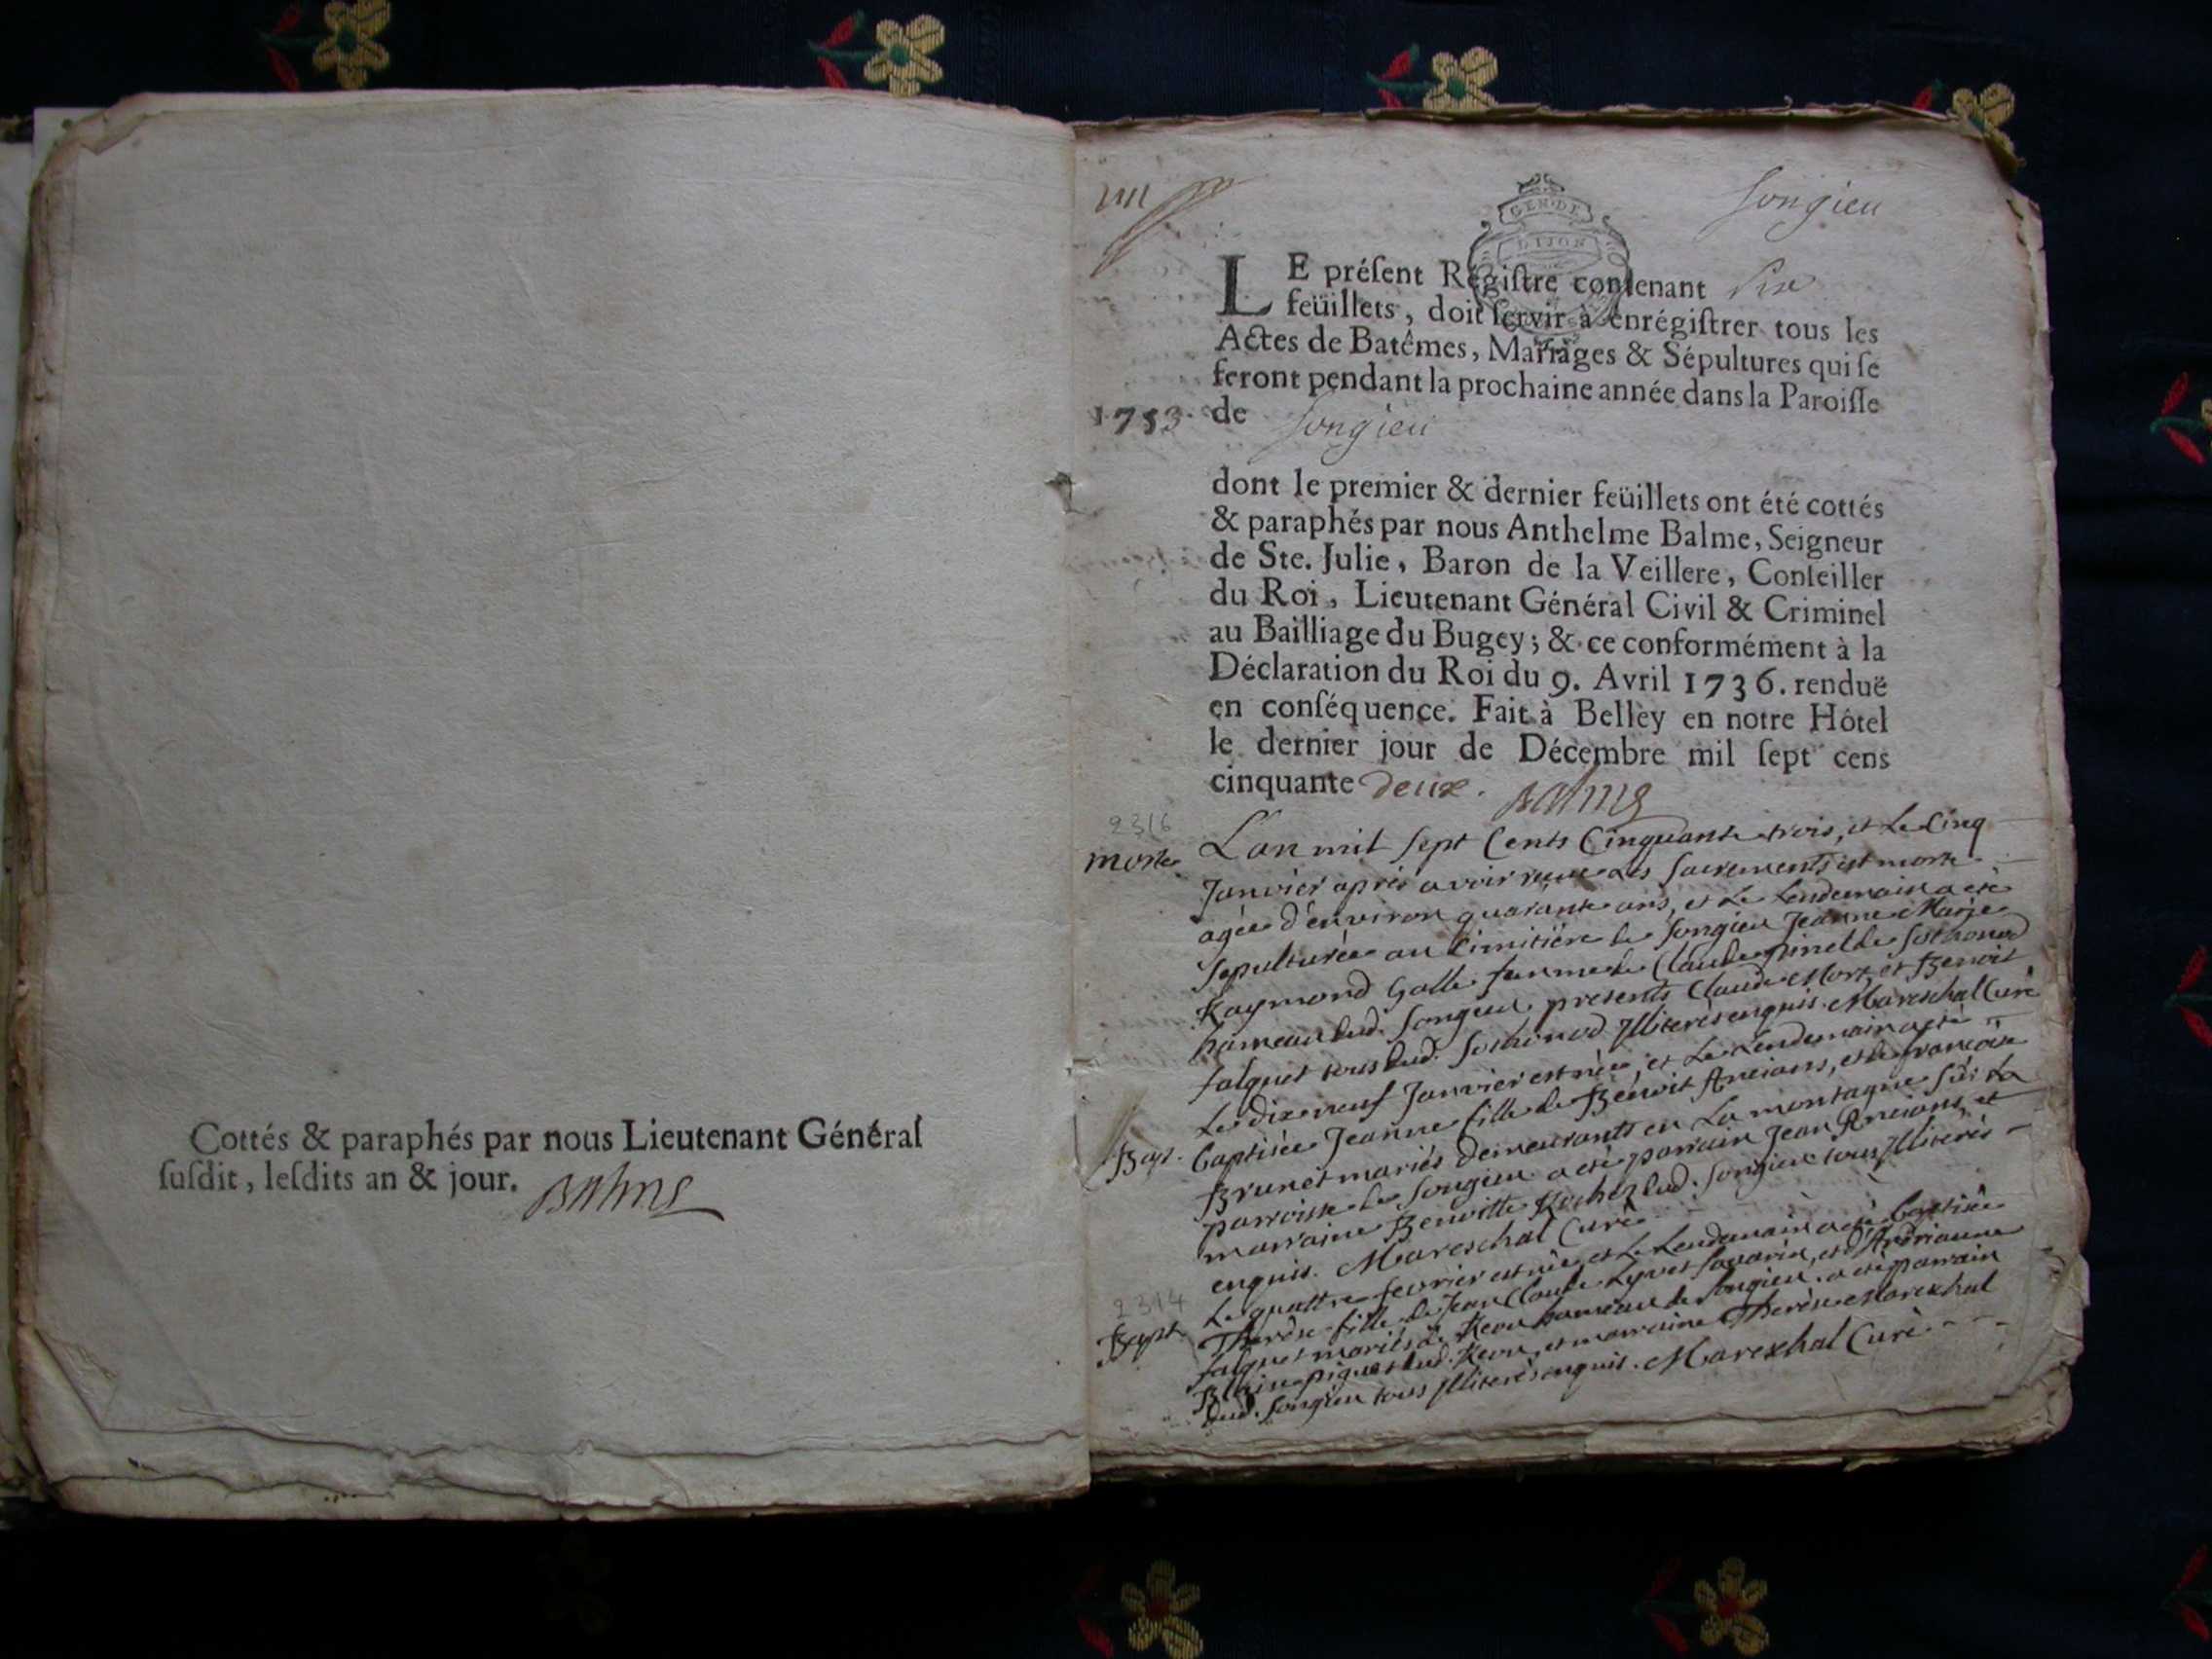 Cottés & paraphés par nous Lieutenant Général
ſuſdit, leſdits an & jour. Balme
Songieu
GEN. DE
DIJON
LE préſent Régiſtre contenant Six
feüillets, doit ſervir à enrégiſtrer tous les
Actes de Batêmes, Mariages & Sépultures qui ſe
feront pendant la prochaine année dans la Paroiſſe
1753. de Songieu
dont le premier & dernier feüillets ont été cottés
& paraphés par nous Anthelme Balme, Seigneur
de Ste. Julie, Baron de la Veillere, Conſeiller
du Roi, Lieutenant Général Civil & Criminel
au Bailliage du Bugey; & ce conformément à la
Déclaration du Roi du 9. Avril 1736. renduë
en conſéquence. Fait à Belley en notre Hôtel
le dernier jour de Décembre mil ſept cens
cinquante deux. Balme
2316
morte L'an mil sept Cents Cinquante trois, et Le Cinq
Janvier après avoir reçue les sacrements est morte
agée d'environ quarante ans, et Le Lendemain a été
sepulturée au Cimitière de Songieu Jeanne Marie
Raymond Galle femme de Claude pinel de Sothonod
hameau dud. Songieu presents Claude Mort, et Benoit
falquet tous dud. Sothonod Illiterés enquis. Mareschal Curé
Le dix neuf Janvier est née, et Le Lendemain a été
Bapt. baptisée Jeanne fille de Benoit Ancians, et de françoise
Brunet mariés demeurants en La montagne sur La
parroisse de Songieu a été parrain Jean Ancians, et
marraine Benoitte Rochez dud. Songieu tous Illiterés
enquis. Mareschal Curé
2314
Le quattre fevrier est née, et Le Lendemain a été baptisée
Bapt. Therèse fille de Jean Claude Lyvet Savarin, et d'Andrianne
falquet mariés de hameau de Songieu. a été parrain
piquet dud. et marraine Therèse Mareschal
dud. Songieu tous Illiterés enquis. Mareschal Curé